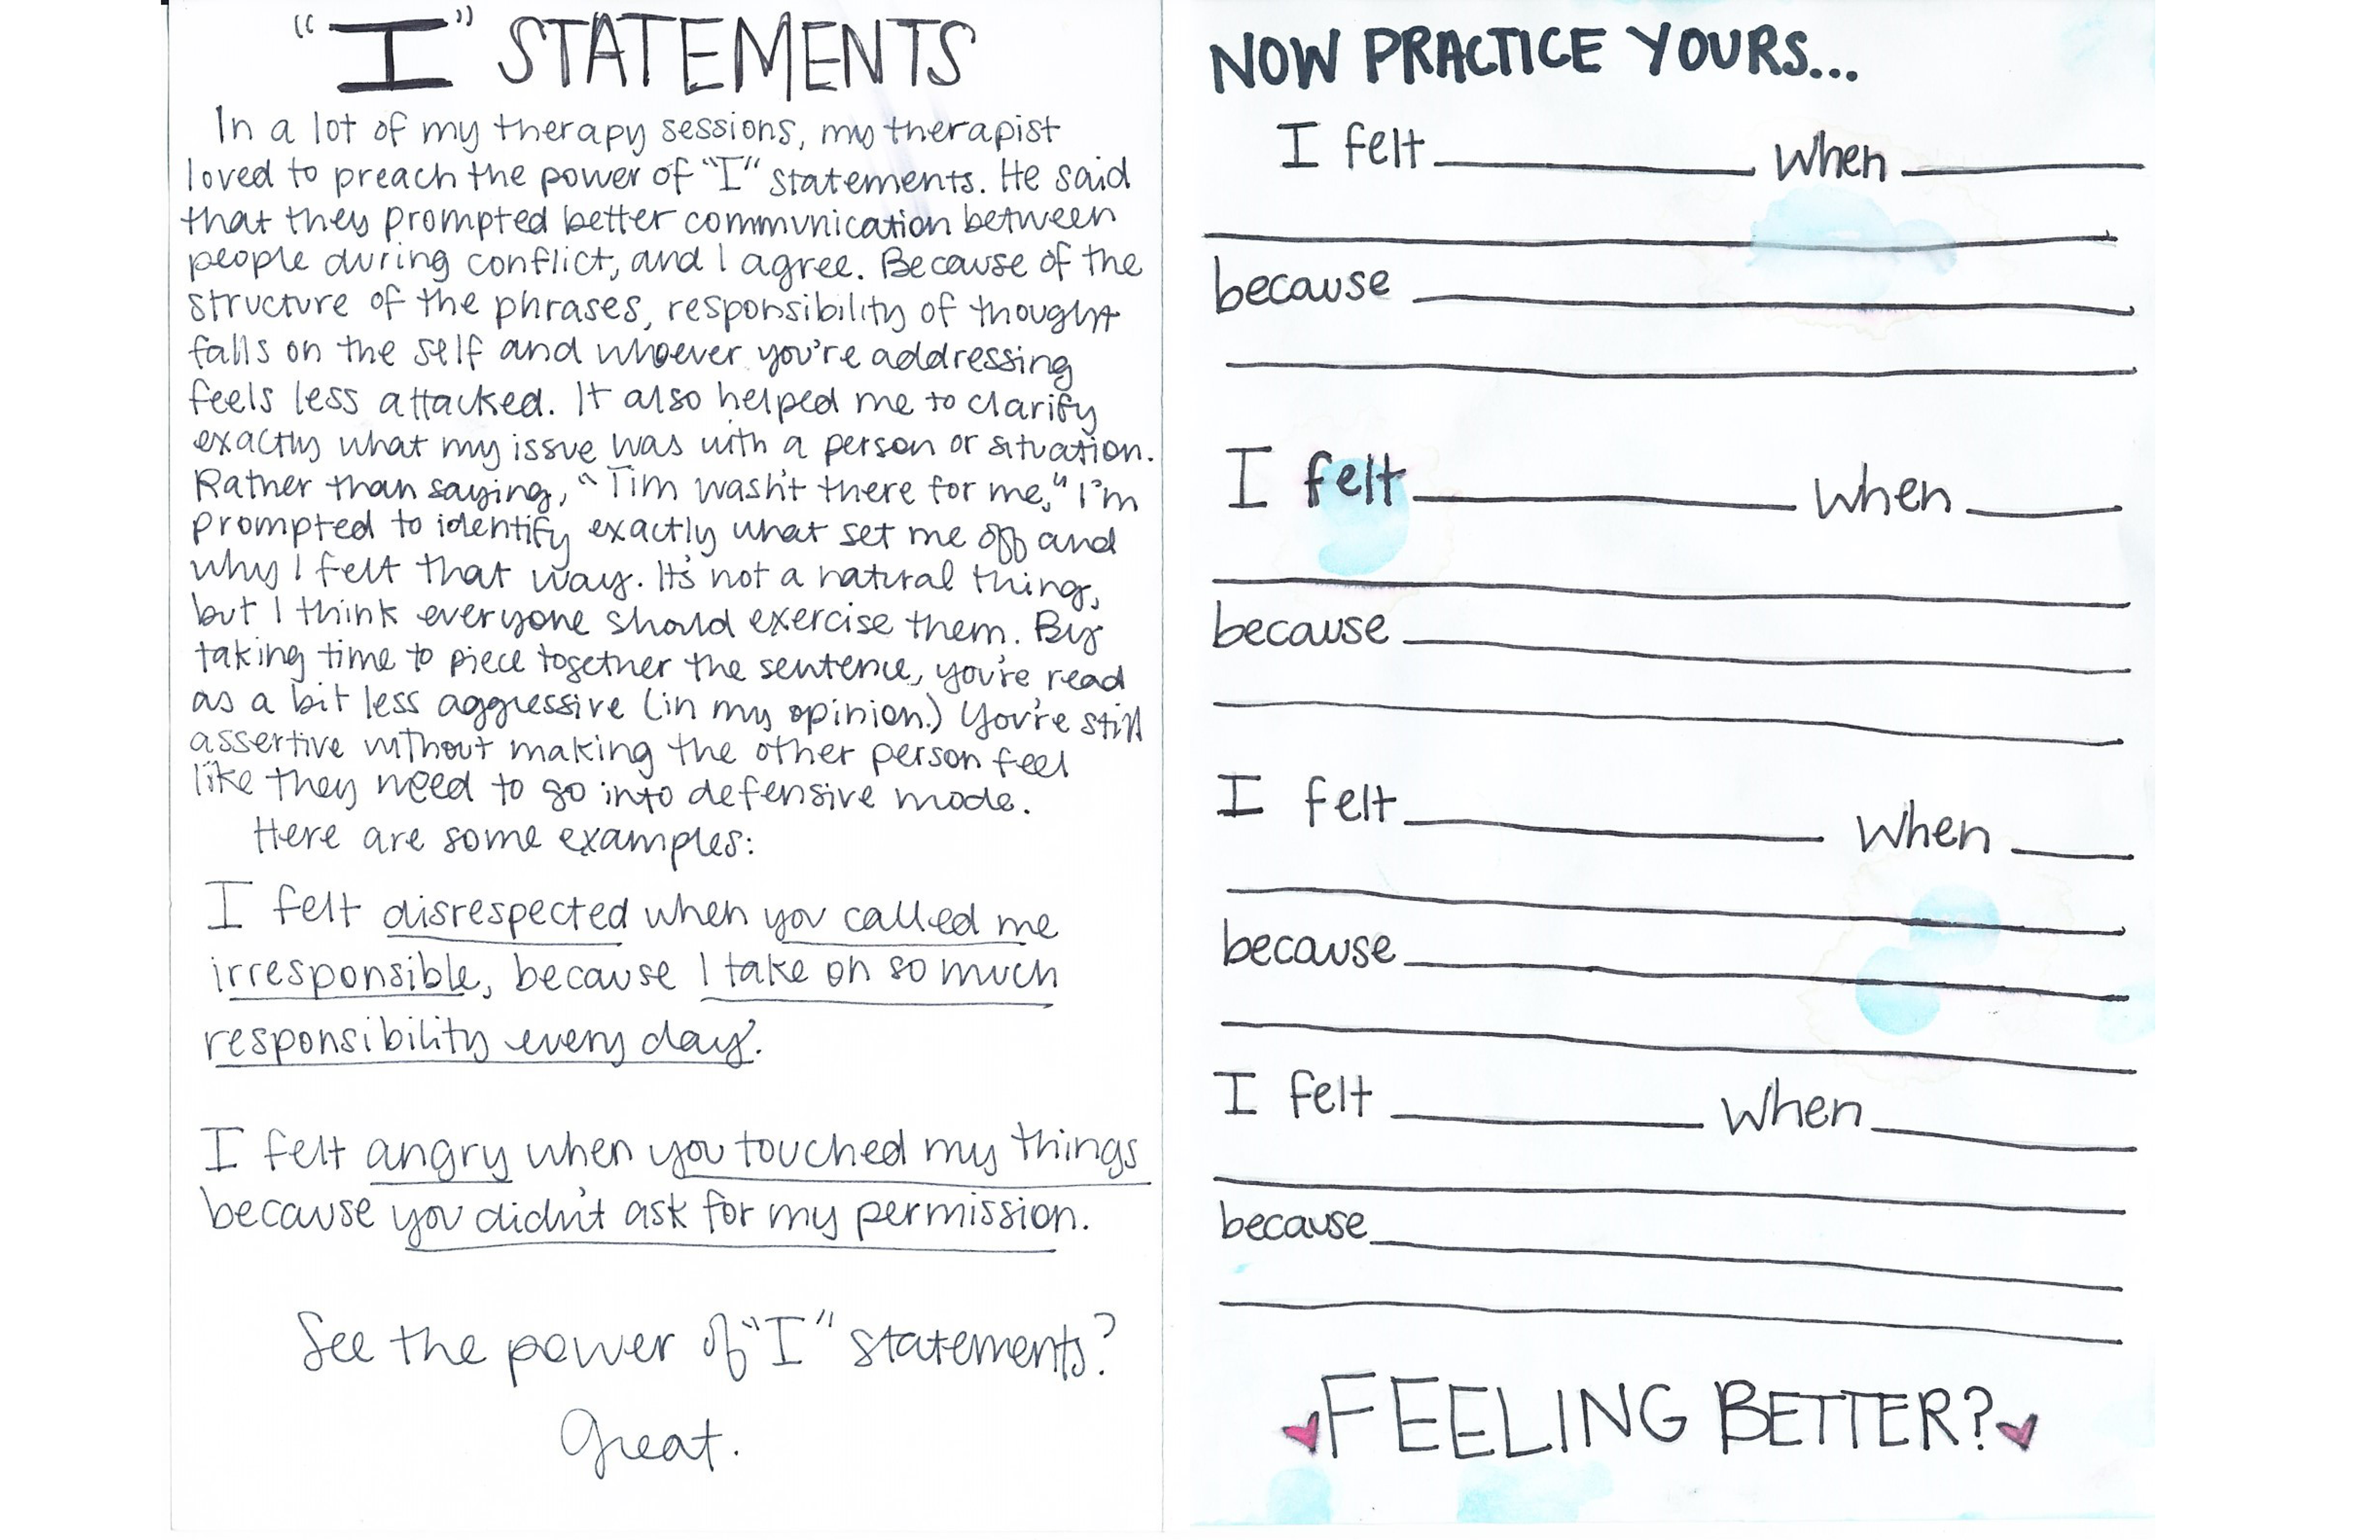 "I" STATEMENTS
In a lot of my therapy sessions, my therapist
loved to preach the power of "I" statements. He said
that they prompted better communication between
people during conflict, and I agree. Because of the
structure of the phrases, responsibility of thought
falls on the self and whoever you're addressing
feels less attacked. It also helped me to clarify
exactly what my issue was with a person or situation.
Rather than saying, "Tim wasn't there for me," I'm
prompted to identify exactly what set me off and
why I felt that way. It's not a natural thing,
but I think everyone should exercise them. By
taking time to piece together the sentence, you're read
as a bit less aggressive (in my opinion.) You're still
assertive without making the other person feel
like they need to go into defensive mode.
Here are some examples:
I felt disrespected when you called me
irresponsible, because I take on so much
responsibility every day.
I felt angry when you touched my things
because you didn't ask for my permission.
See the power of "I" statements?
Great.
NOW PRACTICE YOURS...
I felt ____ when ____
because ____
I felt ____ when ____
because ____
I felt ____ when ____
because ____
I felt ____ when ____
because ____
FEELING BETTER?